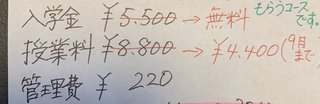 入学金 ¥5.500 → 無料 もらうコースです。
授業料 ¥8.800 → ¥4.400(9月まで
管理費 ¥ 220